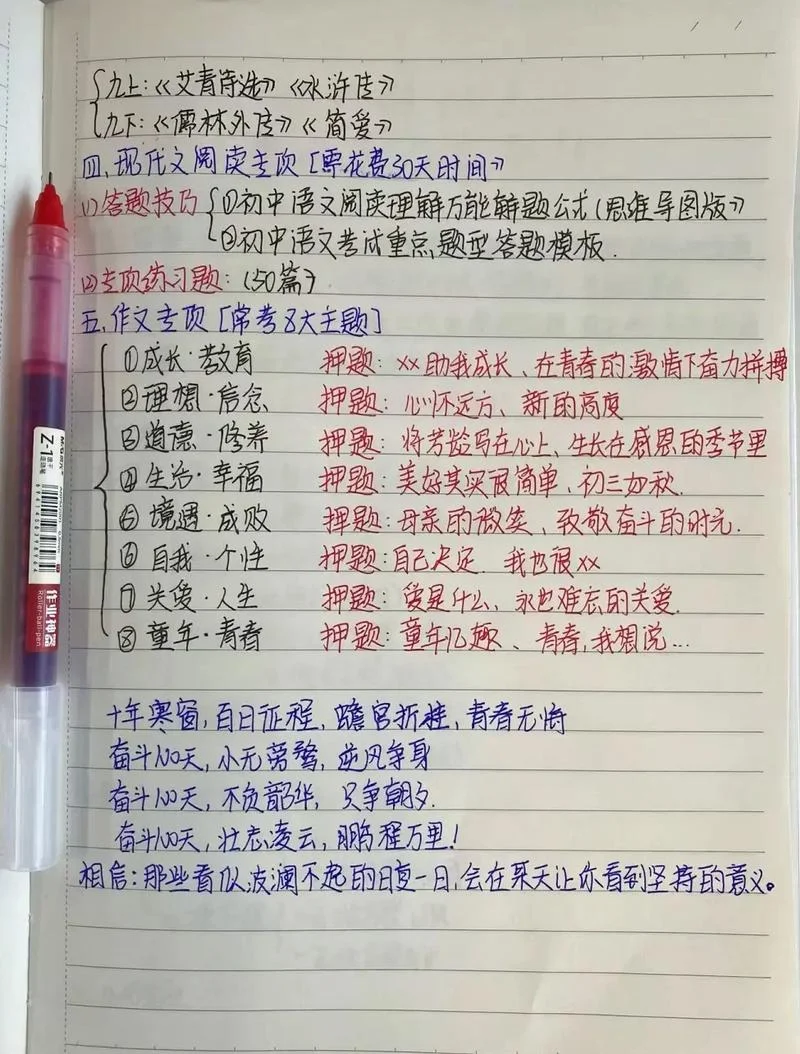 九上:《艾青诗选》《水浒传》
九下:《儒林外传》《简爱》
四、现代文阅读专项[需花费30天时间》
(1)答题技巧 ①初中语文阅读理解万能解题公式(思维导图版》
②初中语文考试重点题型答题模板.
(2)专项练习题:(50篇)
五、作文专项[常考8大主题]
①成长·教育 押题: xx助我成长、在青春的激情下奋力拼搏
②理想·信念 押题: 心怀远方、新的高度
③道德·修养 押题: 将芳龄写在心上、生长在感恩的季节里
④生活·幸福 押题: 美好其实很简单、初三如秋.
⑤境遇·成败 押题: 母亲的微笑、致敬奋斗的时光.
⑥自我·个性 押题: 自己决定 我也很xx
⑦关爱·人生 押题: 爱是什么、永也难忘的关爱.
⑧童年·青春 押题: 童年忆趣、青春,我想说...
十年寒窗,百日征程,蟾宫折桂,青春无悔
奋斗100天,小无旁骛,逆风争身
奋斗100天,不负韶华,只争朝夕.
奋斗100天,壮志凌云,鹏程万里!
相信:那些看似波澜不起的日复一日,会在某天让你看到坚持的意义。
M&G晨光
Z-1
作业神器
Roller-ball-pen